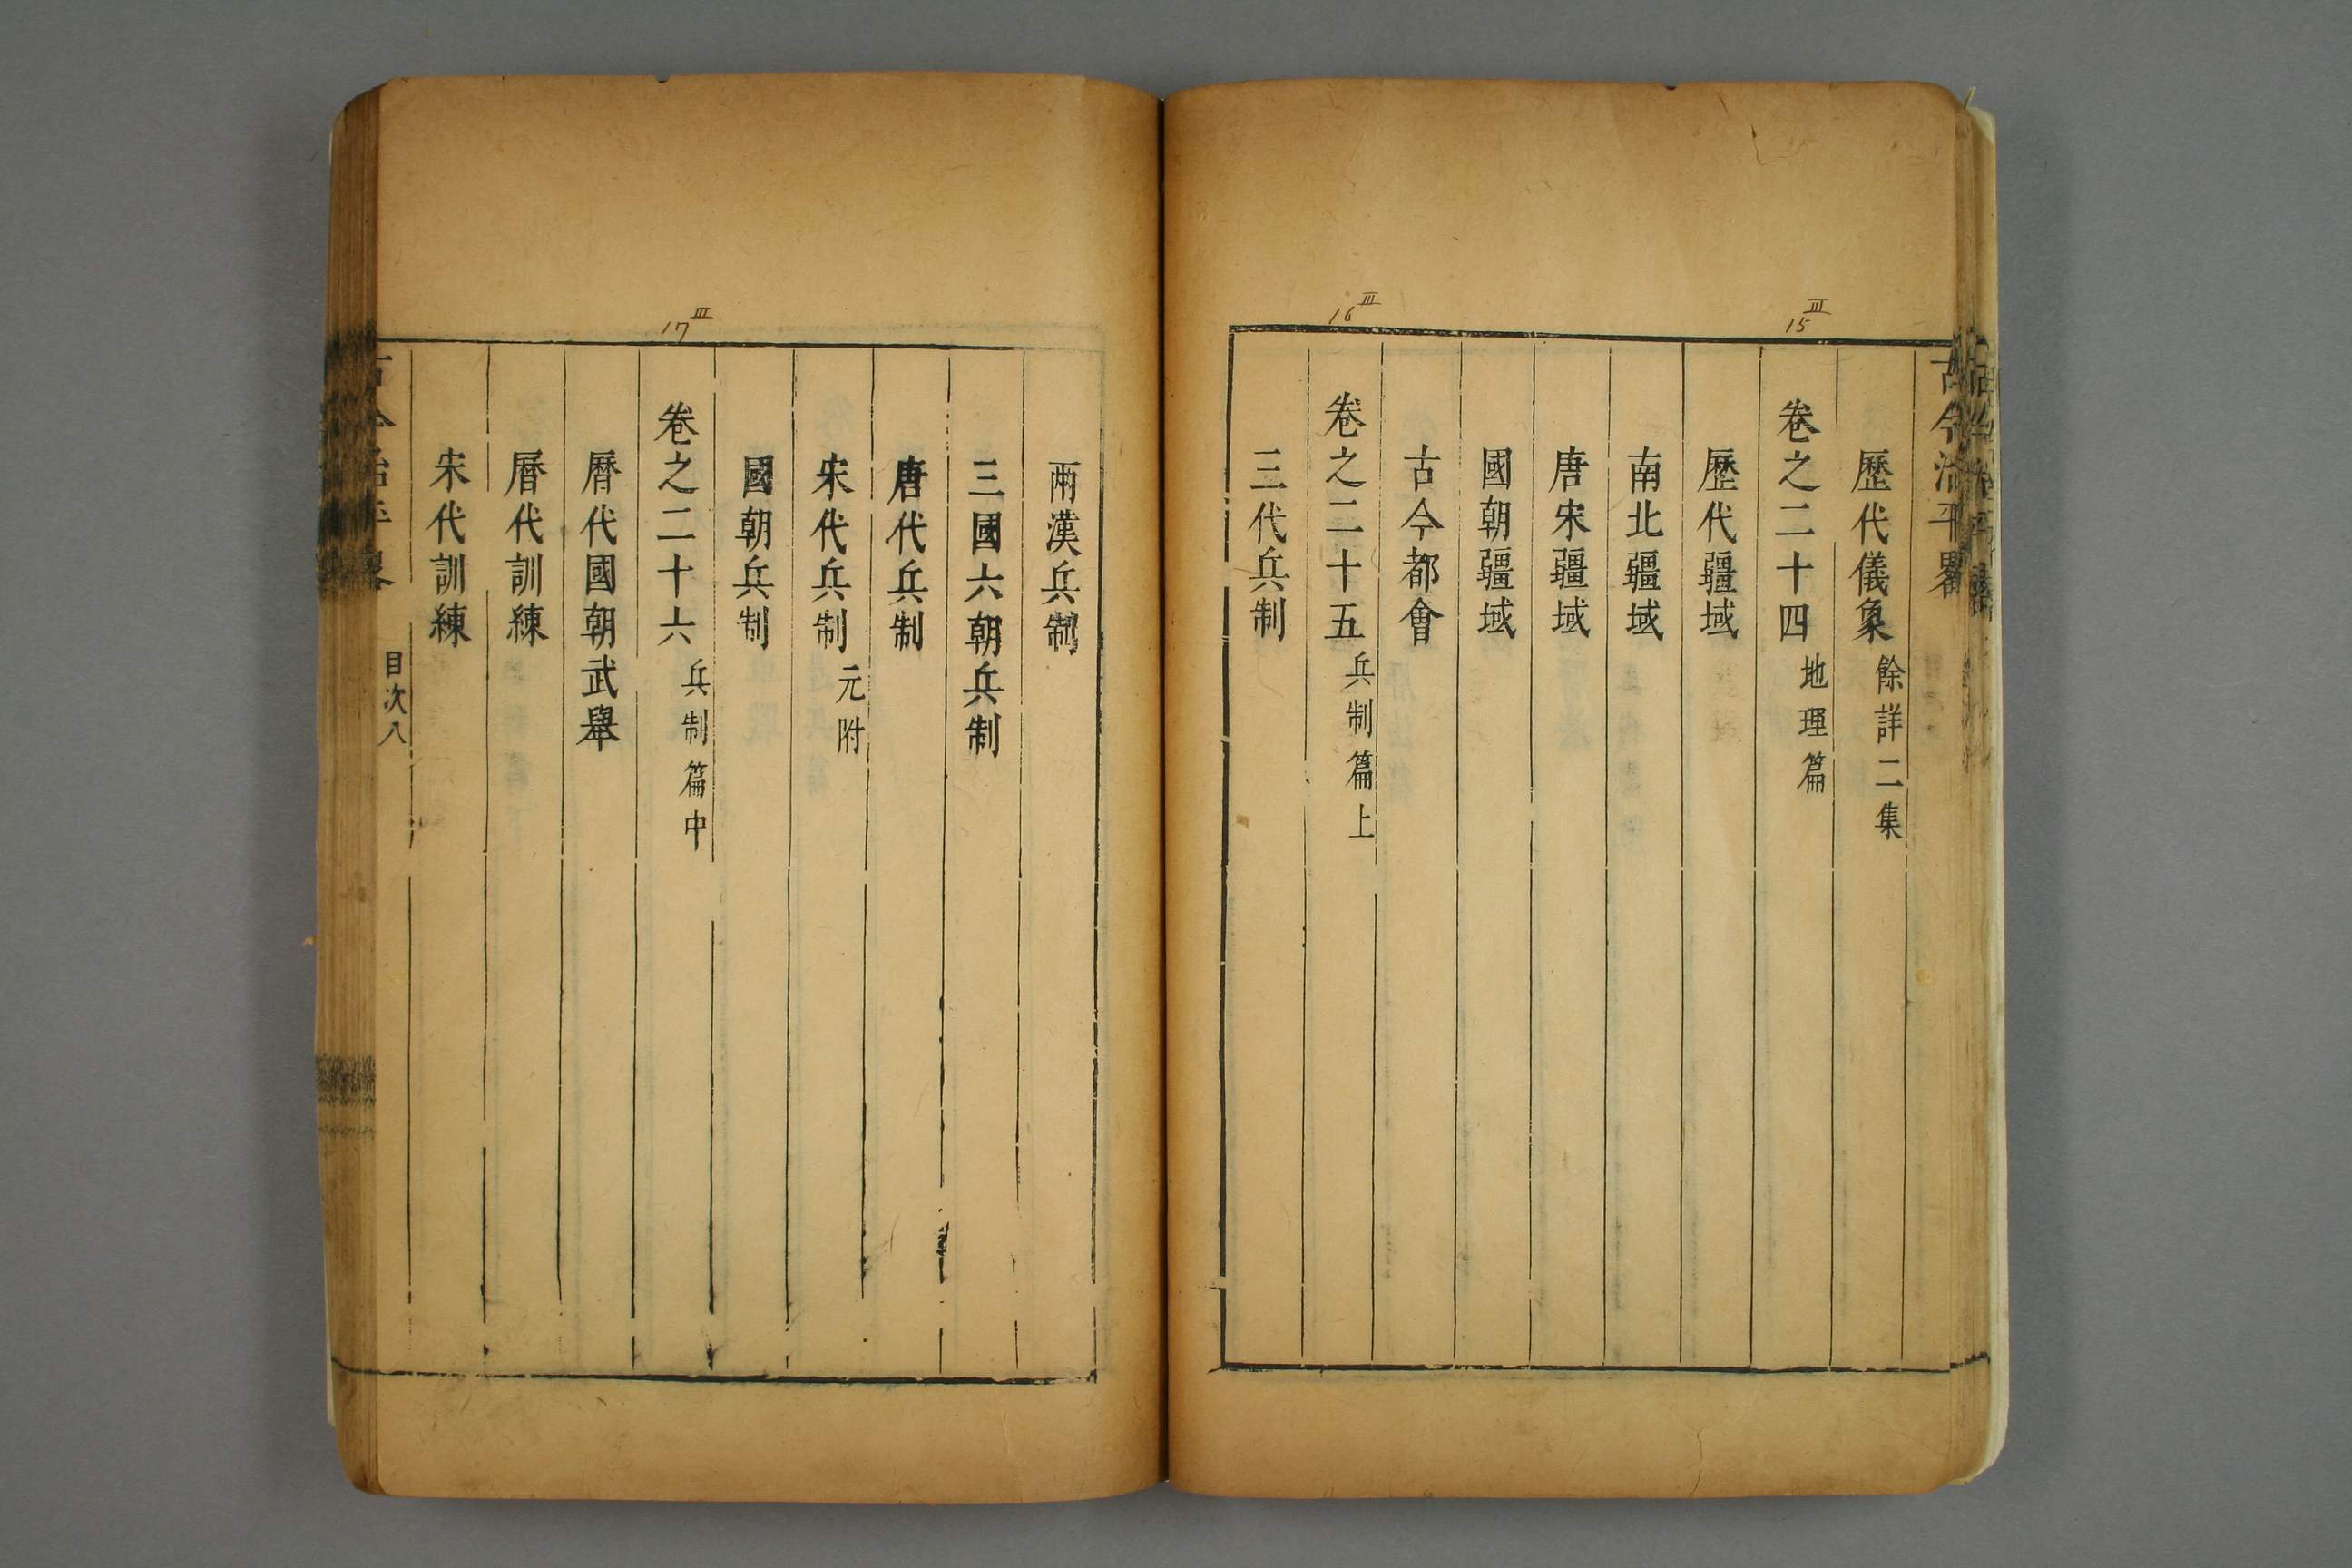 III
15
III
16
古今治平畧
歷代儀象 餘詳二集
卷之二十四 地理篇
歷代疆域
南北疆域
唐宋疆域
國朝疆域
古今都會
卷之二十五 兵制篇上
三代兵制
III
17
兩漢兵制
三國六朝兵制
唐代兵制
宋代兵制 元附
國朝兵制
卷之二十六 兵制篇中
曆代國朝武舉
曆代訓練
宋代訓練
古今治平畧 目次八